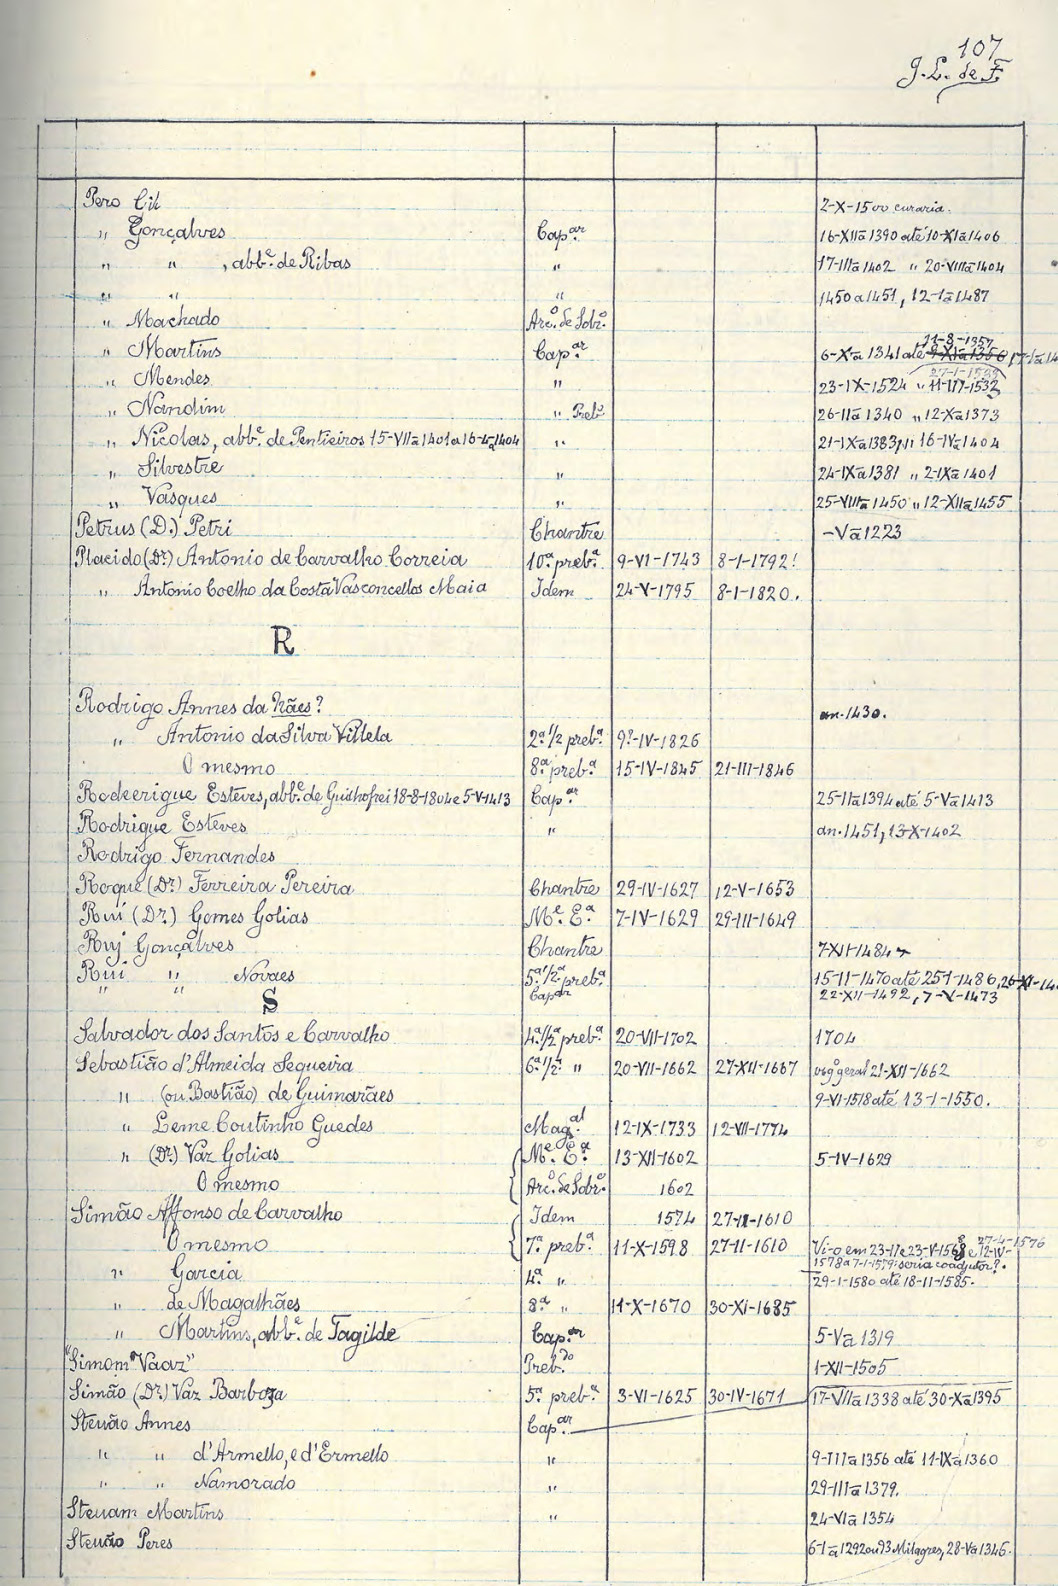 107
J. L. de F.
Pero Gil 2-X-1500 curaria.
" Gonçalves Cap.ar 16-XIIa 1390 até 10-XIa 1406
" " , abb.e de Ribas " 17-IIIa 1402 " 20-VIIIa 1404
" " " 1450 a 1451, 12-Iª 1487
" Machado Arc.o de Sobr.o
" Martins Cap.ar 6-Xa 1341 até 11-8-1357
" Mendes " 23-IX-1524 " 11-III-1532
" Nandim " Preb.o 26-IIa 1340 " 12-Xa 1373
" Nicolas, abb.e de Pentieiros 15-VIIa 1401 a 16-4a 1404 " 21-IXa 1383, " 16-IVa 1404
" Silvestre " 24-IXa 1381 " 2-IXa 1401
" Vasques " 25-VIIIa 1450 " 12-XIIa 1455
Petrus (D.) Petri Chantre -Va 1223
Placido (Dr.) Antonio de Carvalho Correia 10.a preb.a 9-VI-1743 8-I-1792!
" Antonio Coelho da Costa Vasconcellos Maia Idem 24-V-1795 8-I-1820.
R
Rodrigo Annes da Nães? an. 1430.
" Antonio da Silva Villela 2.a 1/2 preb.a 9?-IV-1826
O mesmo 8.a preb.a 15-IV-1845 21-III-1846
Rodeerigue Esteves, abb.e de Guilhofrei 18-8-1804 e 5-V-1413 Cap.ar 25-IIa 1394 até 5-Va 1413
Rodrigue Esteves " an. 1451, 13-X-1402
Rodrigo Fernandes
Roque (Dr.) Ferreira Pereira Chantre 29-IV-1627 12-V-1653
Rui (Dr.) Gomes Golias M.e E.a 7-IV-1629 29-III-1649
Ruj Gonçalves Chantre 7-XII-1484
Rui " Novaes 5.a 1/2 preb.a 15-II-1470 até 25-1-1486, 26-XI-14
" " Cap.ar 22-XII-1492, 7-V-1473
S
Salvador dos Santos e Carvalho 4.a 1/2 preb.a 20-VII-1702 1704
Sebastião d'Almeida Sequeira 6.a 1/2 " 20-VII-1662 27-XII-1667 vig.o geral 21-XII-1662
" (ou Bastião) de Guimarães 9-VI-1518 até 13-1-1550.
" Leme Coutinho Guedes Mag.al 12-IX-1733 12-VII-1774
" (Dr.) Vaz Golias M.e E.a 13-XII-1602 5-IV-1629
O mesmo Arc.o de Sobr.o 1602
Simão Affonso de Carvalho Idem 1574 27-II-1610
O mesmo 7.a preb.a 11-X-1598 27-II-1610 Vi-o em 23-II e 23-V-1568 e 12-IV- 27-4-1576
1578 a 7-1-1579: seria coadjutor?.
" Garcia 4.a " 29-1-1580 até 18-11-1585.
" de Magalhães 8.a " 11-X-1670 30-XI-1685
" Martins, abb.e de Tagilde Cap.ar 5-Va 1319
"Simom Vaaz" Preb.do 1-XII-1505
Simão (Dr.) Vaz Barboza 5.a preb.a 3-VI-1625 30-IV-1671 17-VIIa 1338 até 30-Xa 1395
Steuão Annes Cap.ar
" " d'Armello, e d'Ermello " 9-IIIa 1356 até 11-IXa 1360
" " Namorado " 29-IIIa 1379.
Steuam Martins " 24-VIa 1354
Steuão Peres 6-Ia 1292 ou 93 Milagres, 28-Va 1346.